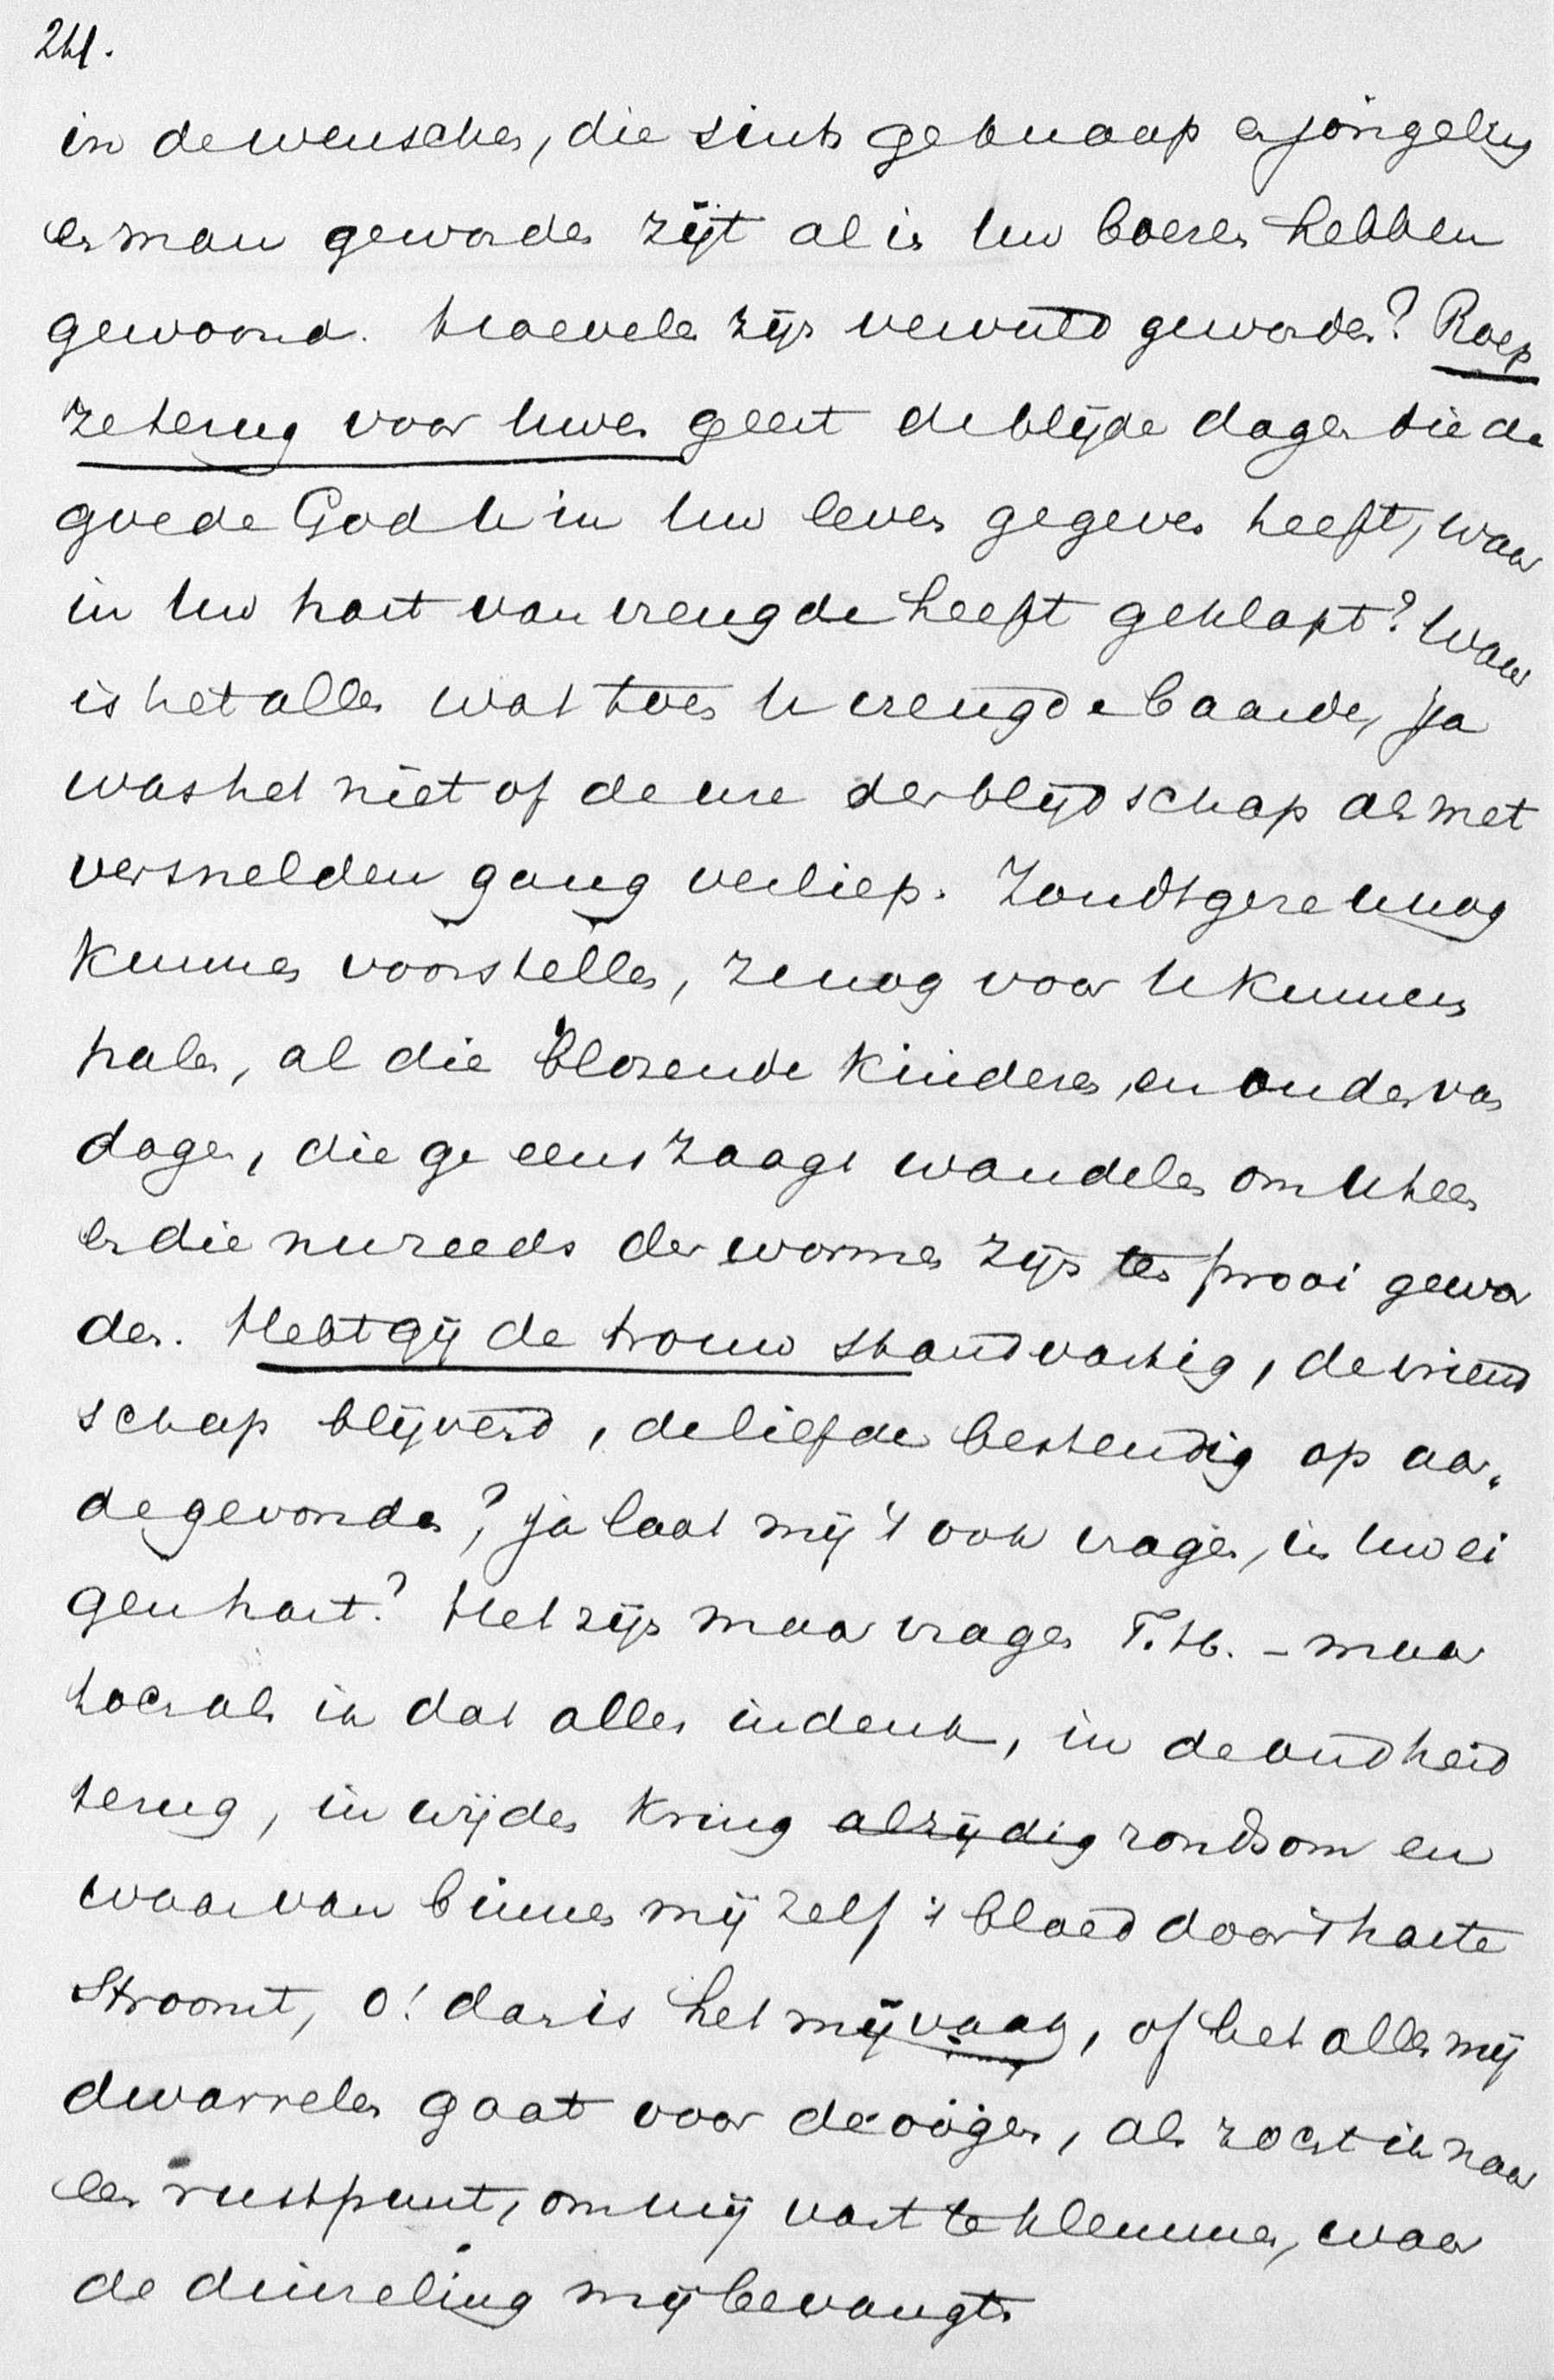 241.
in de wenschen, die sints ge knaap en jongeling
en man geworden zijt al in uw boezem hebben
gewoond. Hoevele zijn vervuld geworden? Roep
ze terug voor uwen geest de blijde dagen die de
goede God U in uw leven gegeven heeft, waar
in uw hart van vreugde heeft geklopt? Waar
is het alles wat toen U vreugde baarde, ja
was het niet of de ure der blijdschap als met
versnelden gang verliep. Zoudt ge ze U nog
kunnen voorstellen, ze nog voor U kunnen
halen, al die blozende kinderen, en ouden van
dagen, die ge eens zaagt wandelen om U heen
en die nu reeds der wormen zijn ten prooi gewor
den. Hebt gij de trouw standvastig, de vriend
schap blijvend, de liefde bestendig op aar„
de gevonden?, ja laat mij 't ook vragen, in uw ei
gen hart? Het zijn maar vragen T. H. – maar
toch als ik dat alles indenk, in de oudheid
terug, in wijden kring alzijdig rondsom en
waar van binnen mij zelf 't bloed door 't harte
stroomt, o! dan is het mij vaak, of het alles mij
dwarrelen gaat voor de oogen, als zocht ik naar
een rustpunt, om mij vast te klemmen, waar
de duizeling mij bevangt.